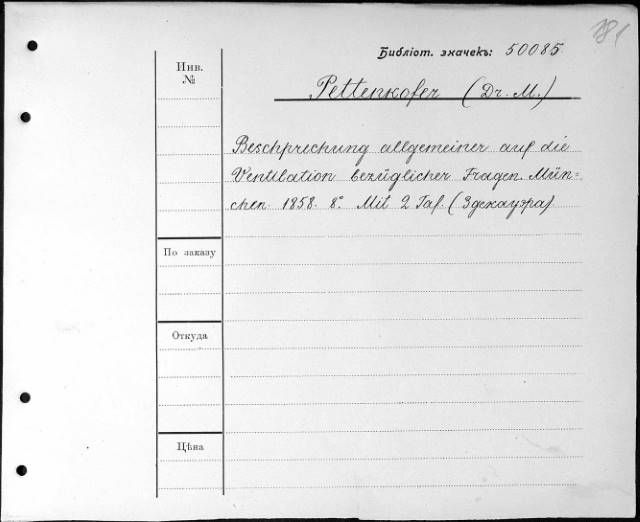 181
Библіот. значекъ: 50085
Инв.
№
Pettenkofer (Dr. M.)
Beschprechung allgemeiner auf die
Ventilation bezüglicher Fragen. Mün=
chen. 1858. 8°. Mit 2 Taf. (3 декаузра)
По заказу
Откуда
Цѣна